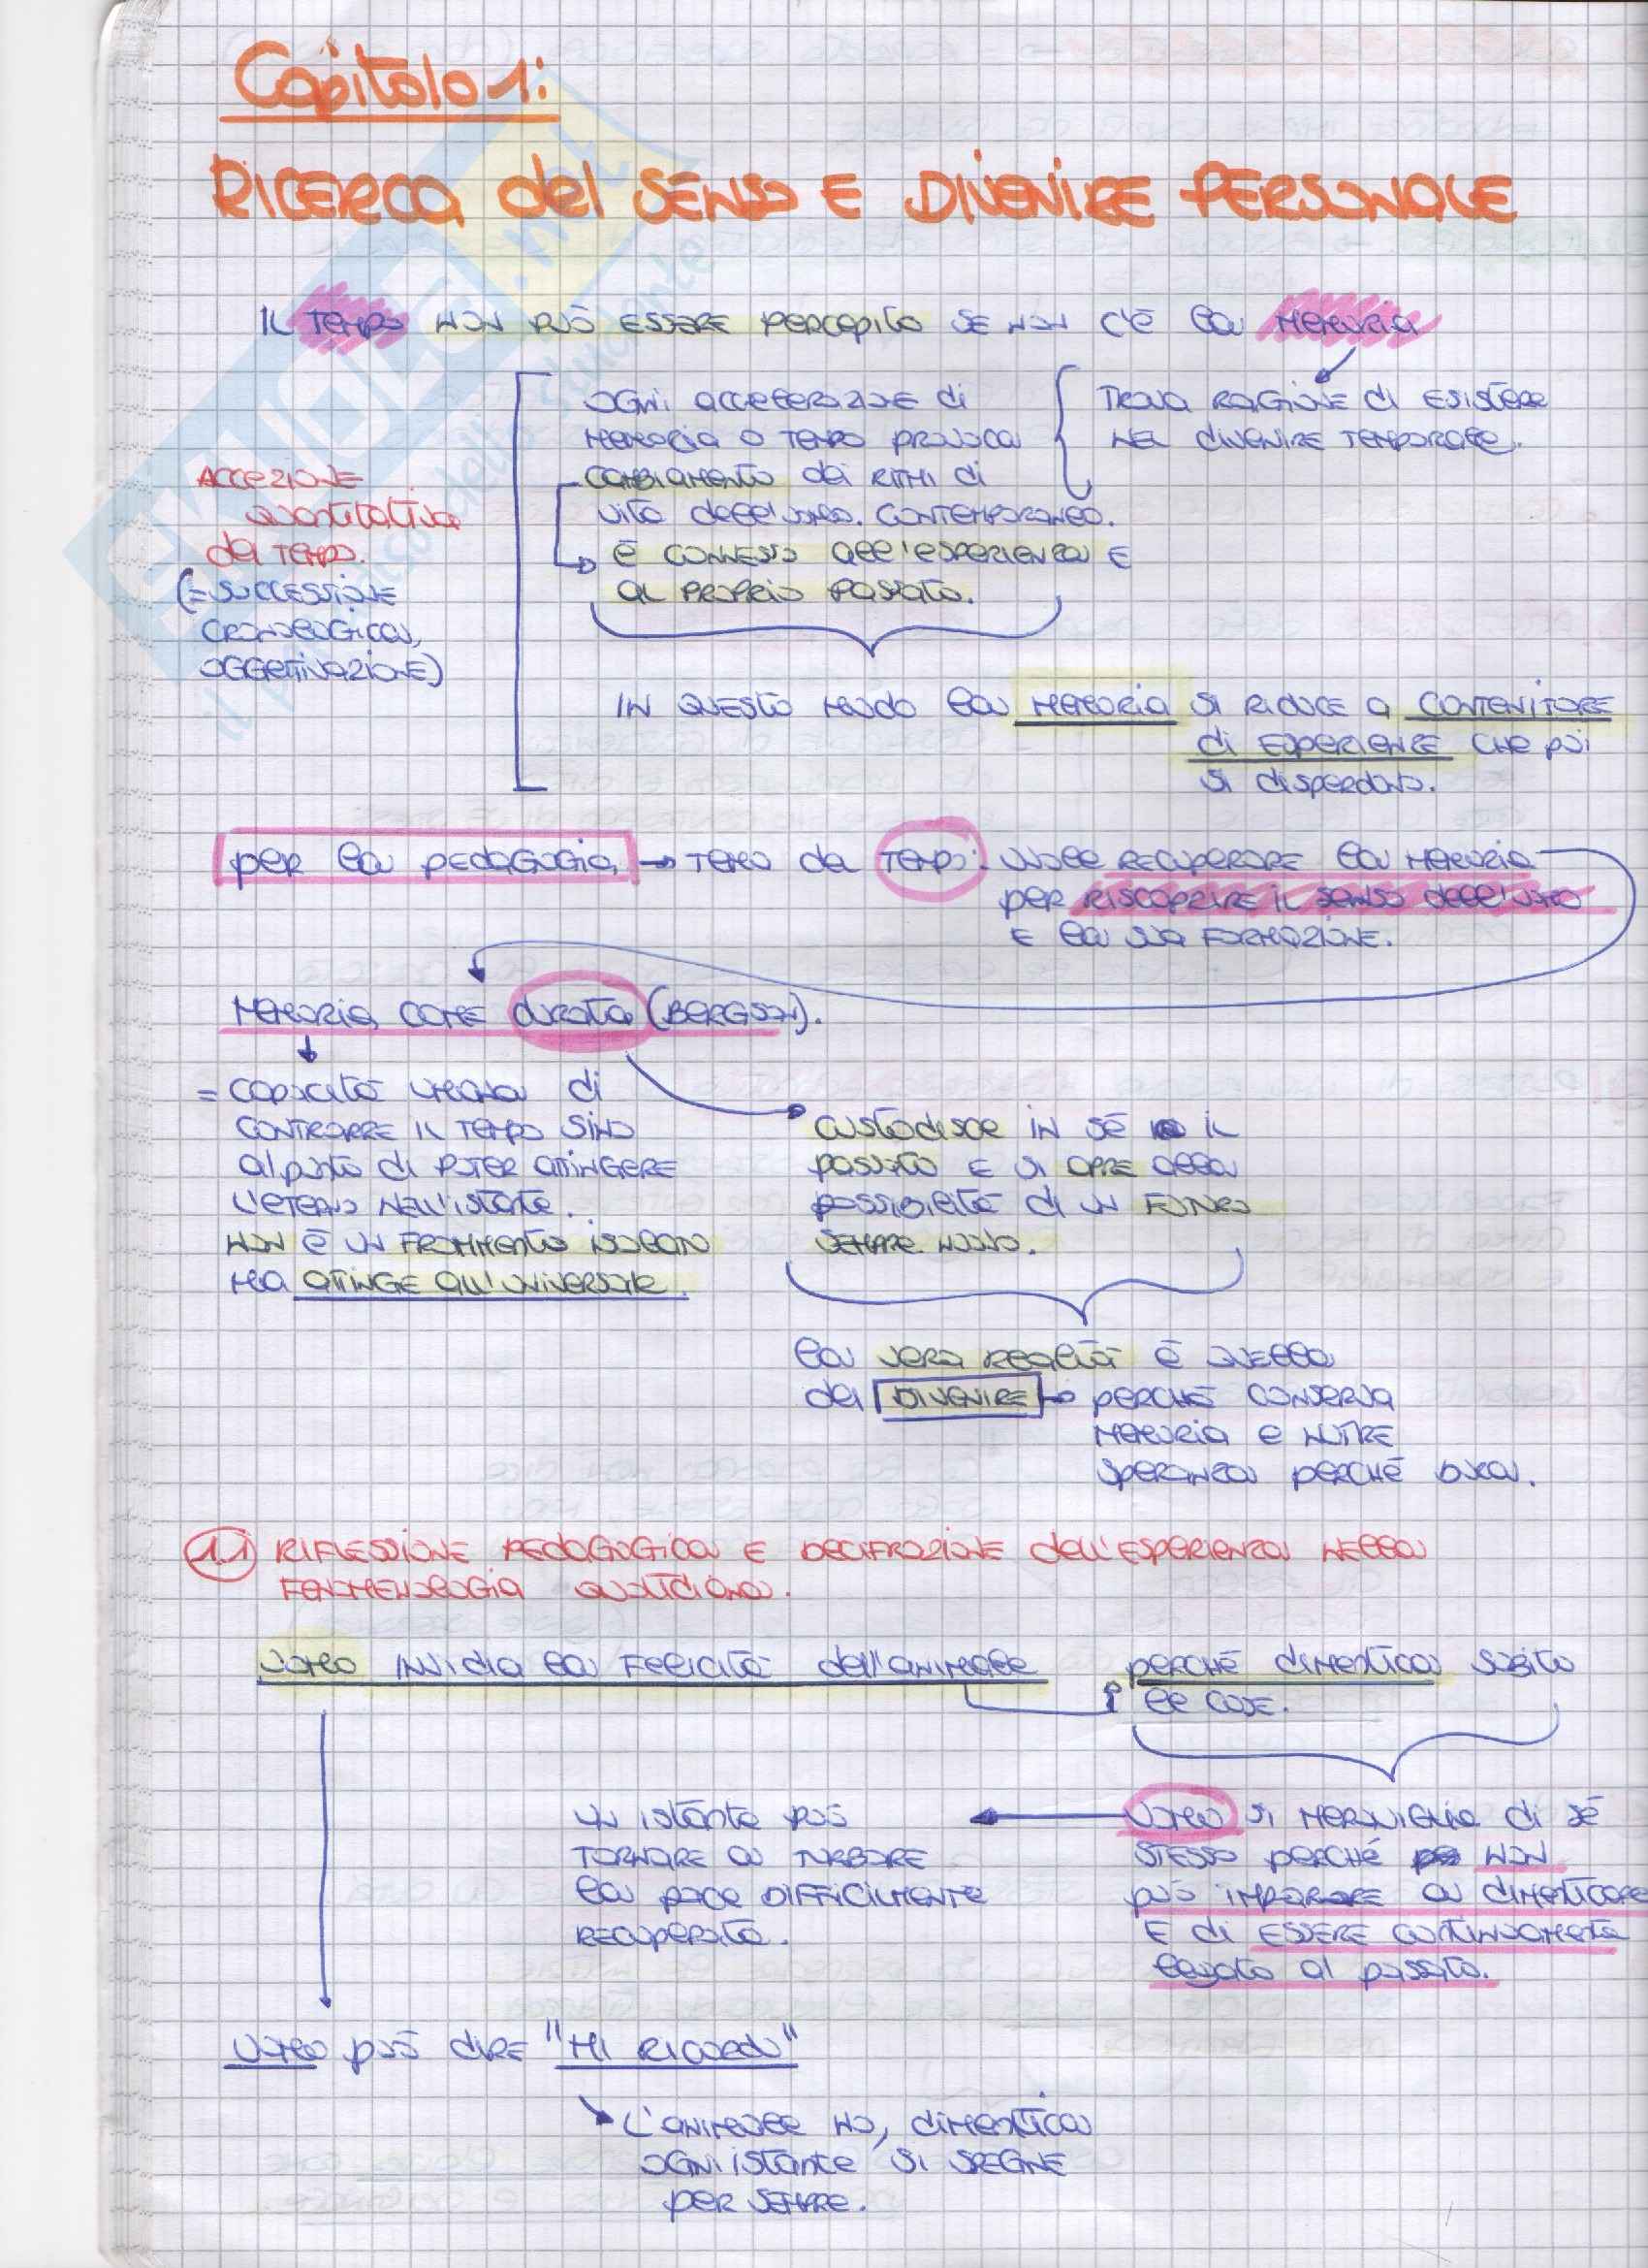 Capitolo 1:
RICERCA del SENSO E DIVENIRE PERSONALE
IL TEMPO NON PUÒ ESSERE PERCEPITO SE NON C'È la MEMORIA
OGNI ACCELERAZIONE di
MEMORIA O TEMPO PROVOCA
CAMBIAMENTO dei RITMI di
vita dell'uomo CONTEMPORANEO.
È CONNESSO all'esperienza E
AL PROPRIO PASSATO.
TROVA RAGIONE di ESISTERE
NEL divenire TEMPORALE.
ACCEZIONE
quantitativa
del TEMPO.
(=SUCCESSIONE
CRONOLOGICA,
OGGETTIVAZIONE)
IN QUESTO MODO la MEMORIA SI RIDUCE a CONTENITORE
di ESPERIENZE CHE poi
si disperdono.
per la PEDAGOGIA → TEMA dei TEMPI: vuole RECUPERARE la MEMORIA
per RISCOPRIRE IL SENSO dell'UOMO
E la sua FORMAZIONE.
MEMORIA COME durata (BERGSON).
= CAPACITÀ UMANA di
CONTRARRE IL TEMPO SINO
al punto di POTER ATTINGERE
L'ETERNO NELL'ISTANTE.
NON È UN FRAMMENTO ISOLATO
MA ATTINGE ALL'UNIVERSALE.
CUSTODISCE IN SÉ IL
PASSATO E SI APRE alla
possibilità di UN FUTURO
SEMPRE NUOVO.
la VERA REALTÀ È QUELLA
del DIVENIRE → PERCHÉ CONSERVA
MEMORIA E NUTRE
SPERANZA PERCHÉ DURA.
1.1 RIFLESSIONE PEDAGOGICA E DECIFRAZIONE dell'ESPERIENZA NELLA
FENOMENOLOGIA QUOTIDIANA.
UOMO INVIDIA la FELICITÀ dell'ANIMALE PERCHÉ dimentica SUBITO
le COSE.
UN ISTANTE PUÒ
TORNARE A TURBARE
la pace DIFFICILMENTE
RECUPERATA.
UOMO SI MERAVIGLIA di SÉ
STESSO PERCHÉ NON
PUÒ IMPARARE A DIMENTICARE
E di ESSERE CONTINUAMENTE
legato al passato.
UOMO può DIRE "MI RICORDO"
L'ANIMALE NO, dimentica
OGNI ISTANTE SI SPEGNE
per SEMPRE.